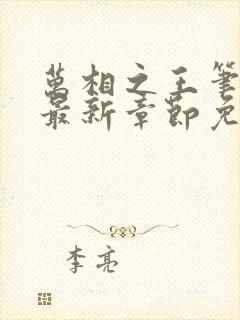 萬相之王筆
最新章節免
李亮